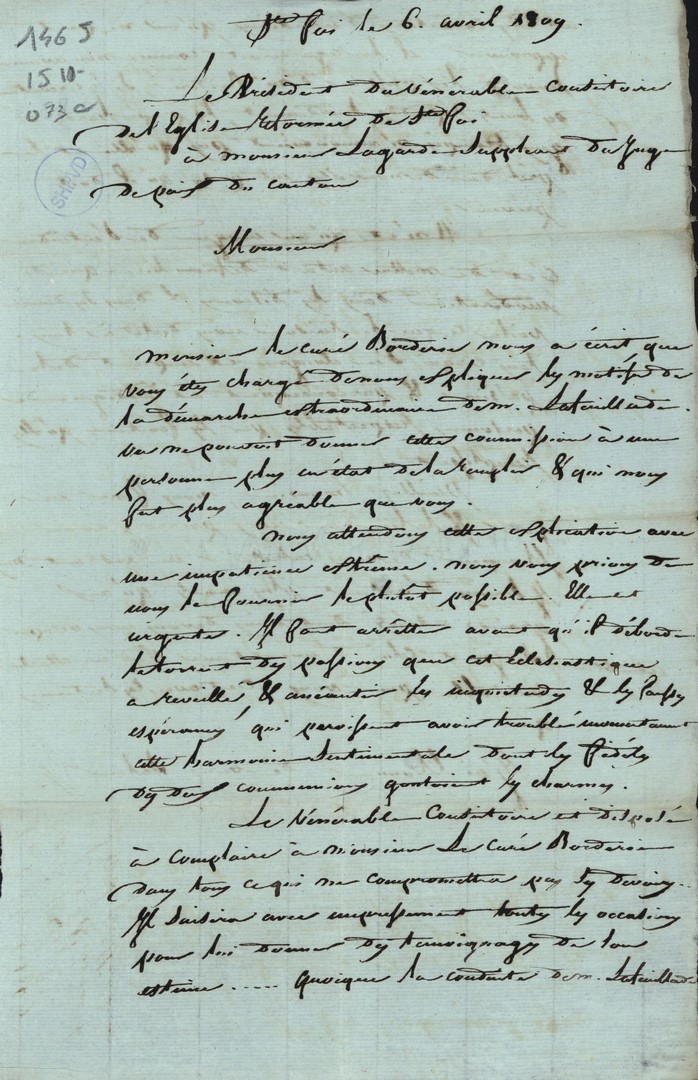 Ste foi le 6. avril 1809.
1465
1510-
073c
SHPVD
Le Président du vénérable Consistoire
de l'Eglise reformée de Ste foi
à monsieur Lagarde Suppleant du Juge
de paix du canton
Monsieur
monsieur le curé Borderie nous a écrit que
vous étes chargé de nous expliquer les motifs de
la démarche extraordinaire de m. Lataillade.
on ne pouvoit donner cette commission à une
personne plus en état de la remplir & qui nous
fut plus agréable que vous.
nous attendons cette explication avec
une impatience extrême. nous vous prions de
nous la fournir le plutôt possible. Elle est
urgente. Il faut arrêtter avant qu'il déborde
le torrent des passions que cet Eclesiastique
a reveillé, & anéantir les inquietudes & les fausses
espérances qui paroissent avoir troublé
cette harmonie sentimentale dont les fidéles
des deux communions goutoient les charmes.
Le vénérable Consistoire est disposé
à complaire à monsieur Le curé Borderie
dans tous ce qui ne comprometra pas ses devoirs..
Il saisira avec empressement toutes les occasions
pour lui donner des temoignages de son
estime ..... quoique la conduite de m. Lataillade